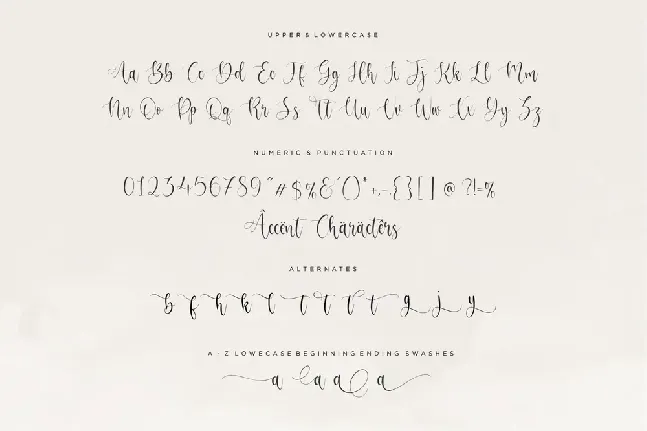 UPPER & LOWERCASE
Aa Bb Cc Dd Ee Ff Gg Hh Ii Jj Kk Ll Mm
Nn Oo Pp Qq Rr Ss Tt Uu Vv Ww Xx Yy Zz
NUMERIC & PUNCTUATION
0123456789~#$%&*()*+,-.{}[]@?!=%
Âccënt Chäräctêrs
ALTERNATES
b f h k l t t t t g j y
A - Z LOWECASE BEGINNING ENDING SWASHES
a a a a a